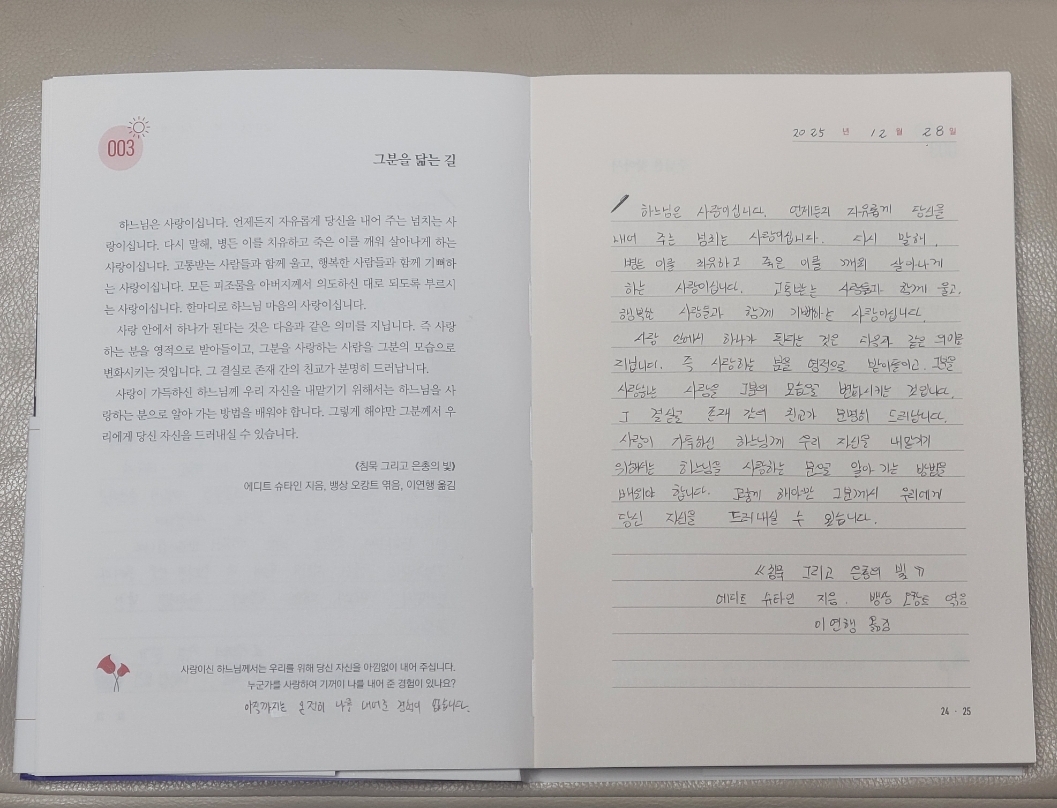 003
그분을 닮는 길
하느님은 사랑이십니다. 언제든지 자유롭게 당신을 내어 주는 넘치는 사
랑이십니다. 다시 말해, 병든 이를 치유하고 죽은 이를 깨워 살아나게 하는
사랑이십니다. 고통받는 사람들과 함께 울고, 행복한 사람들과 함께 기뻐하
는 사랑이십니다. 모든 피조물을 아버지께서 의도하신 대로 되도록 부르시
는 사랑이십니다. 한마디로 하느님 마음의 사랑이십니다.
사랑 안에서 하나가 된다는 것은 다음과 같은 의미를 지닙니다. 즉 사랑
하는 분을 영적으로 받아들이고, 그분을 사랑하는 사람을 그분의 모습으로
변화시키는 것입니다. 그 결실로 존재 간의 친교가 분명히 드러납니다.
사랑이 가득하신 하느님께 우리 자신을 내맡기기 위해서는 하느님을 사
랑하는 분으로 알아 가는 방법을 배워야 합니다. 그렇게 해야만 그분께서 우
리에게 당신 자신을 드러내실 수 있습니다.
《침묵 그리고 은총의 빛》
에디트 슈타인 지음, 뱅상 오캉트 엮음, 이연행 옮김
사랑이신 하느님께서는 우리를 위해 당신 자신을 아낌없이 내어 주십니다.
누군가를 사랑하여 기꺼이 나를 내어 준 경험이 있나요?
아직까지는 온전히 나를 내어준 경험이 없습니다.
2025 년 12 월 28 일
하느님은 사랑이십니다. 언제든지 자유롭게 당신을
내어 주는 넘치는 사랑이십니다. 다시 말해,
병든 이를 치유하고 죽은 이를 깨워 살아나게
하는 사랑이십니다. 고통받는 사람들과 함께 울고,
행복한 사람들과 함께 기뻐하는 사랑이십니다.
사랑 안에서 하나가 된다는 것은 다음과 같은 의미를
지닙니다. 즉 사랑하는 분을 영적으로 받아들이고, 그분을
사람을 그분의 모습으로 변화시키는 것입니다.
그 결실로 존재 간의 친교가 분명히 드러납니다.
사랑이 가득하신 하느님께 우리 자신을 내맡기기
위해서는 하느님을 사랑하는 분으로 알아 가는 방법을
배워야 합니다. 그렇게 해야만 그분께서 우리에게
당신 자신을 드러내실 수 있습니다.
《침묵 그리고 은총의 빛》
에디트 슈타인 지음. 뱅상 오캉트 엮음
이연행 옮김
24 · 25